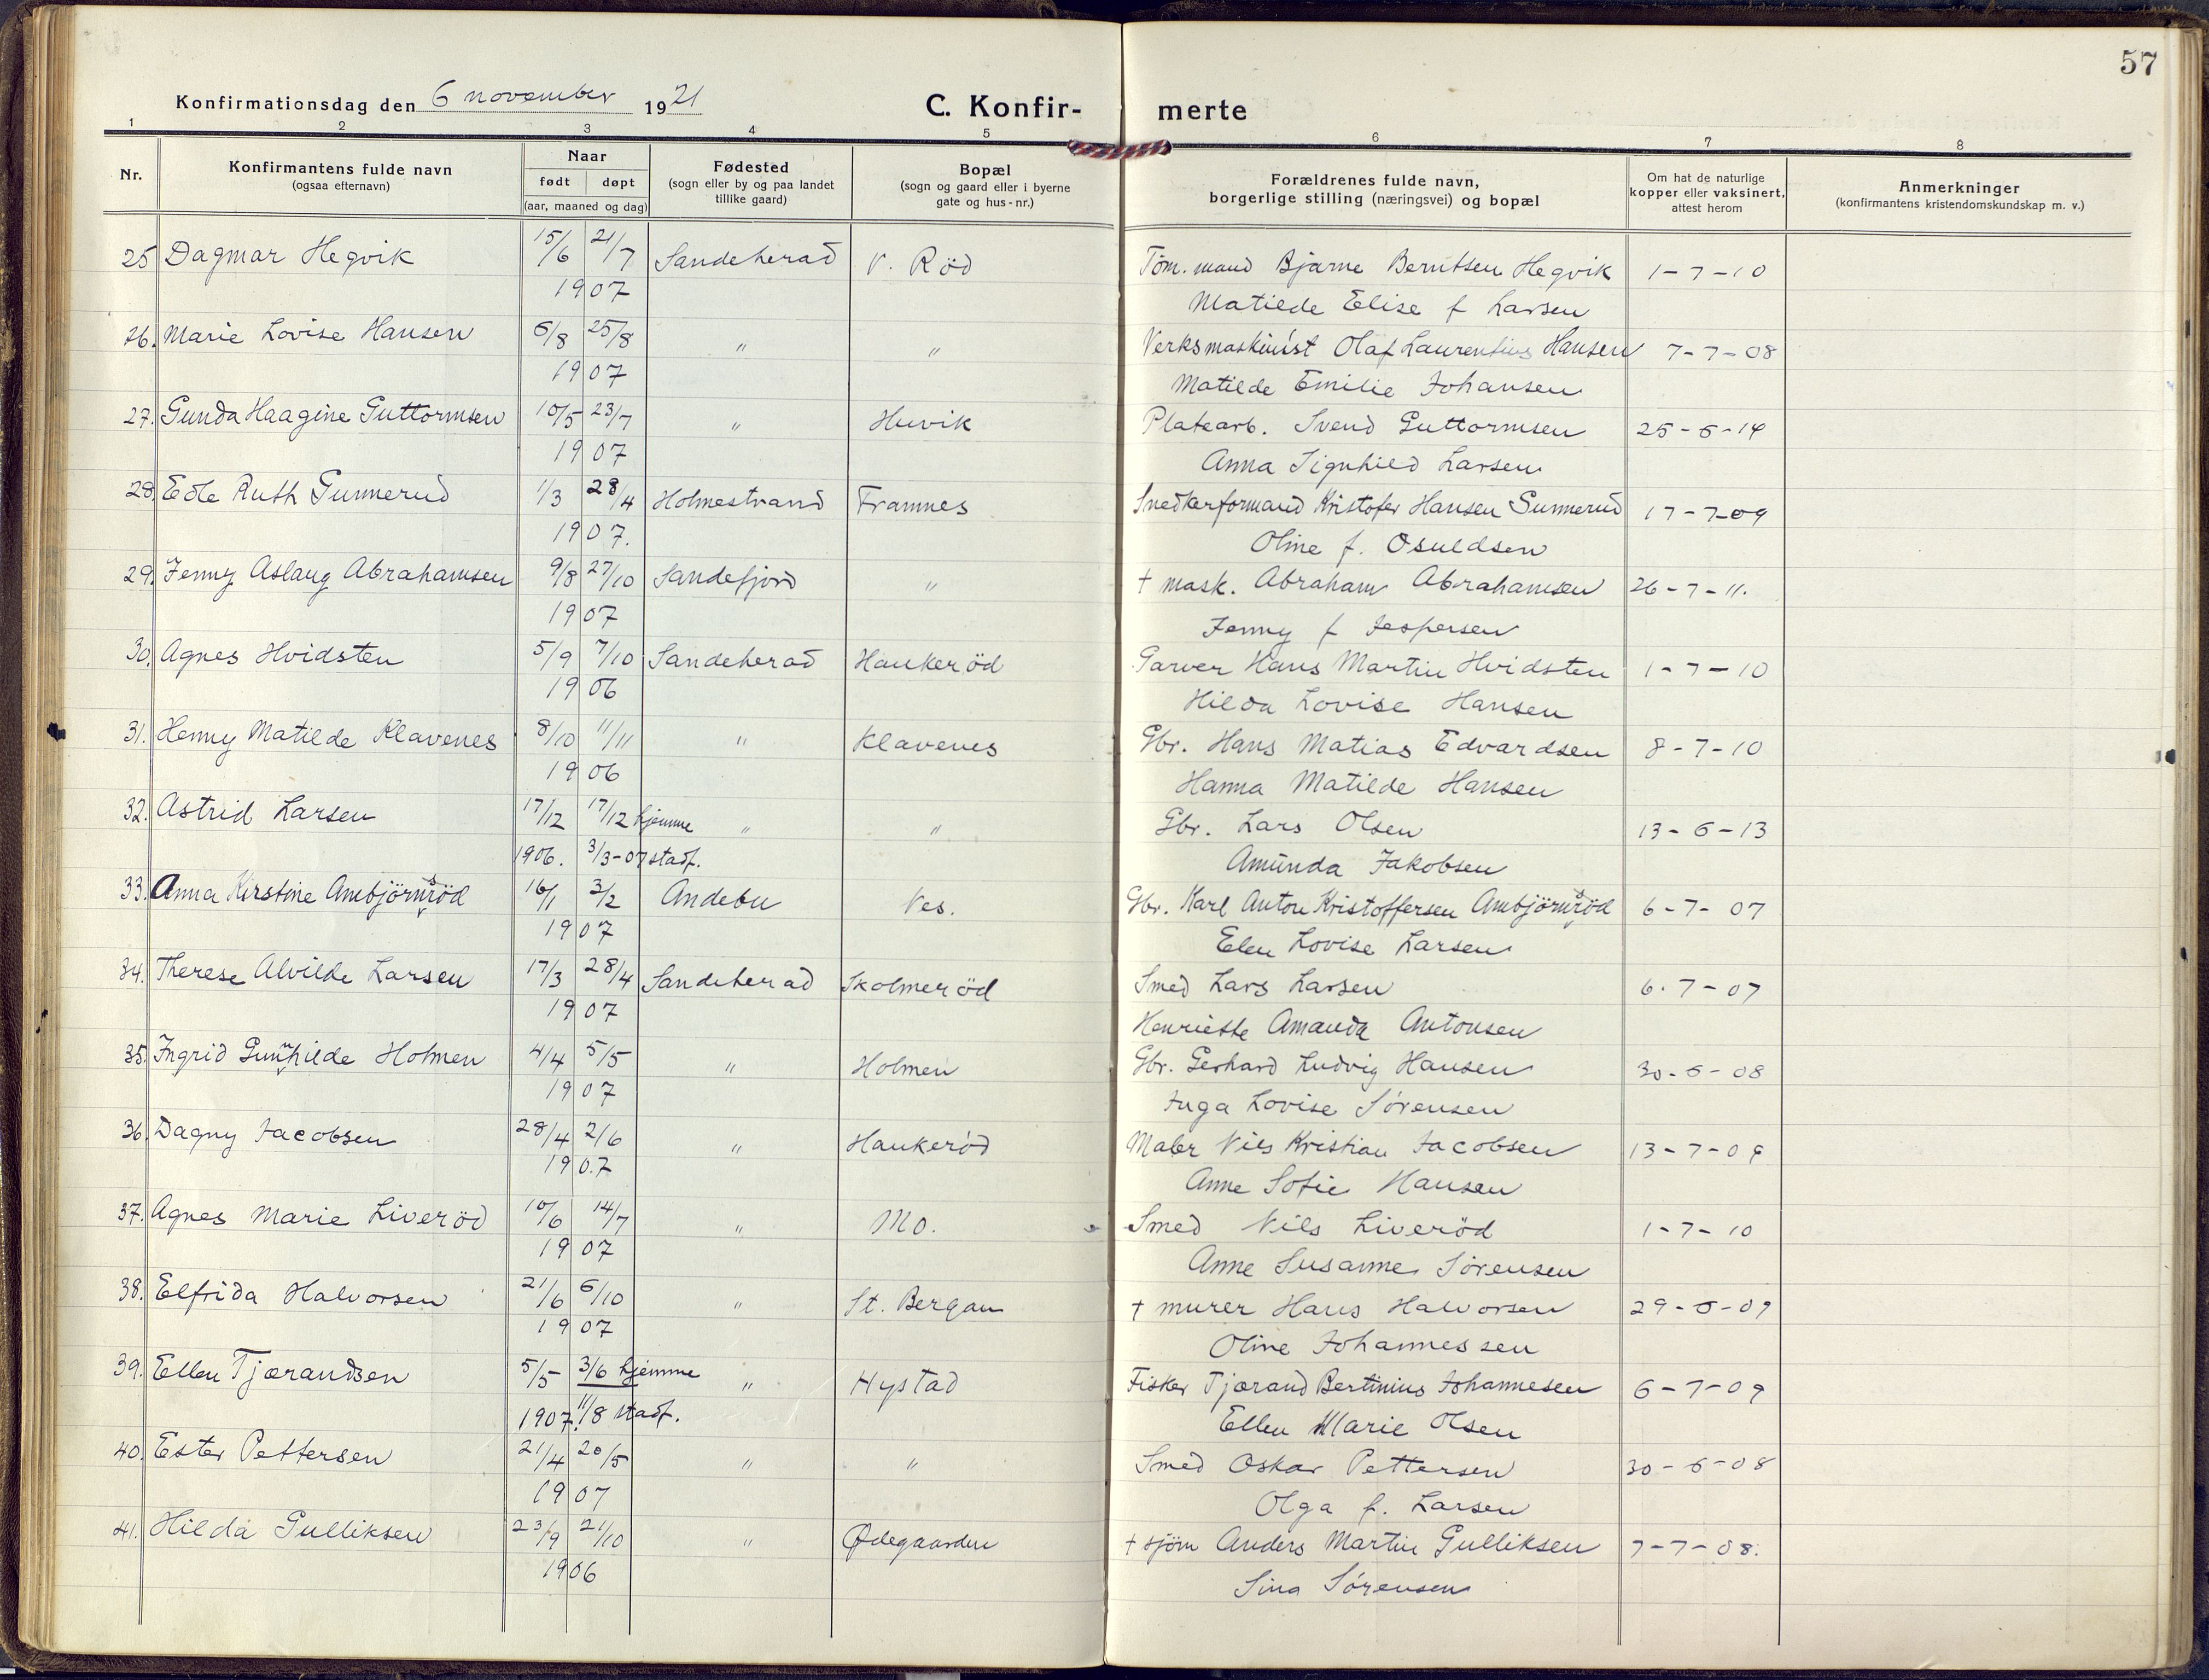 57
Konfirmationsdag den 6 november 1921
C. Konfir- merte
1 2 3 4 5 6 7 8
Nr.
Konfirmantens fulde navn
(ogsaa efternavn)
Naar
født døpt
(aar, maaned og dag)
Fødested
(sogn eller by og paa landet
tillike gaard)
Bopæl
(sogn og gaard eller i byerne
gate og hus-nr.)
Forældrenes fulde navn,
borgerlige stilling (næringsvei) og bopæl
Om hat de naturlige
kopper eller vaksinert,
attest herom
Anmerkninger
(konfirmantens kristendomskundskap m. v.)
25 Dagmar Hegvik 15/6 21/7 Sandeherad V. Röd Töm.mand Bjarne Berntsen Hegvik 1-7-10
1907 Matilde Elise f Larsen
26. Marie Lovise Hansen 6/8 25/8 " " Verksmaskinist Olaf Laurentius Hansen 7-7-08
1907 Matilde Emilie Johansen
27. Gunda Haagine Guttormsen 10/5 23/7 " Huvik Platearb. Svend Guttormsen 25-6-14
1907 Anna Signhild Larsen
28. Edle Ruth Gunnerud 1/3 28/4 Holmestrand Framnes Snedkerformand Kristofer Hansen Gunnerud 17-7-09
1907. Oline f. Osuldsen
29. Jenny Aslaug Abrahamsen 9/8 27/10 Sandefjord " † mask. Abraham Abrahamsen 26-7-11.
1907 Jenny f Jespersen
30. Agnes Hvidsten 5/9 7/10 Sandeherad Haukeröd Garver Hans Martin Hvidsten 1-7-10
1906 Hilda Lovise Hansen
31. Henny Matilde Klavenes 8/10 11/11 " Klavenes Gbr. Hans Matias Edvardsen 8-7-10
1906 Hanna Matilde Hansen
32. Astrid Larsen 17/12 17/12 hjemme " " Gbr. Lars Olsen 13-6-13
1906. 3/3-07 stadf. Amunda Jakobsen
33. Anna Kirstine Ambjörnsröd 16/1 3/2 Andebu Ves. Gbr. Karl Anton Kristoffersen Ambjörnsröd 6-7-07
1907 Elen Lovise Larsen
34. Therese Alvilde Larsen 17/3 28/4 Sandeherad Skolmeröd Smed Lars Larsen 6.7-07
1907 Henriette Amanda Antonsen
35. Ingrid Gunnhilde Holmen 4/4 5/5 " Holmen Gbr. Gerhard Ludvig Hansen 30-6-08
1907 Inga Lovise Sörensen
36. Dagny Jacobsen 28/4 2/6 " Haukeröd Maler Nils Kristian Jacobsen 13-7-09
190.7 Anne Sofie Hansen
37. Agnes Marie Liveröd 10/6 14/7 " Mo. Smed Nils Liveröd 1-7-10
1907 Anne Susanne Sörensen
38. Elfrida Halvorsen 21/6 6/10 " St. Bergan † murer Hans Halvorsen 29-6-09
1907 Oline Johannessen
39. Ellen Tjærandsen 5/5 3/6 hjemme " Hystad Fisker Tjærand Bertinius Johannesen 6-7-09
1907. 11/8 stadf. Ellen Marie Olsen
40. Ester Pettersen 21/4 20/5 " " Smed Oskar Pettersen 30-6-08
1907 Olga f. Larsen
41. Hilda Gulliksen 23/9 21/10 " Ødegaarden † sjöm Anders Martin Gulliksen 7-7-08.
1906 Sina Sörensen